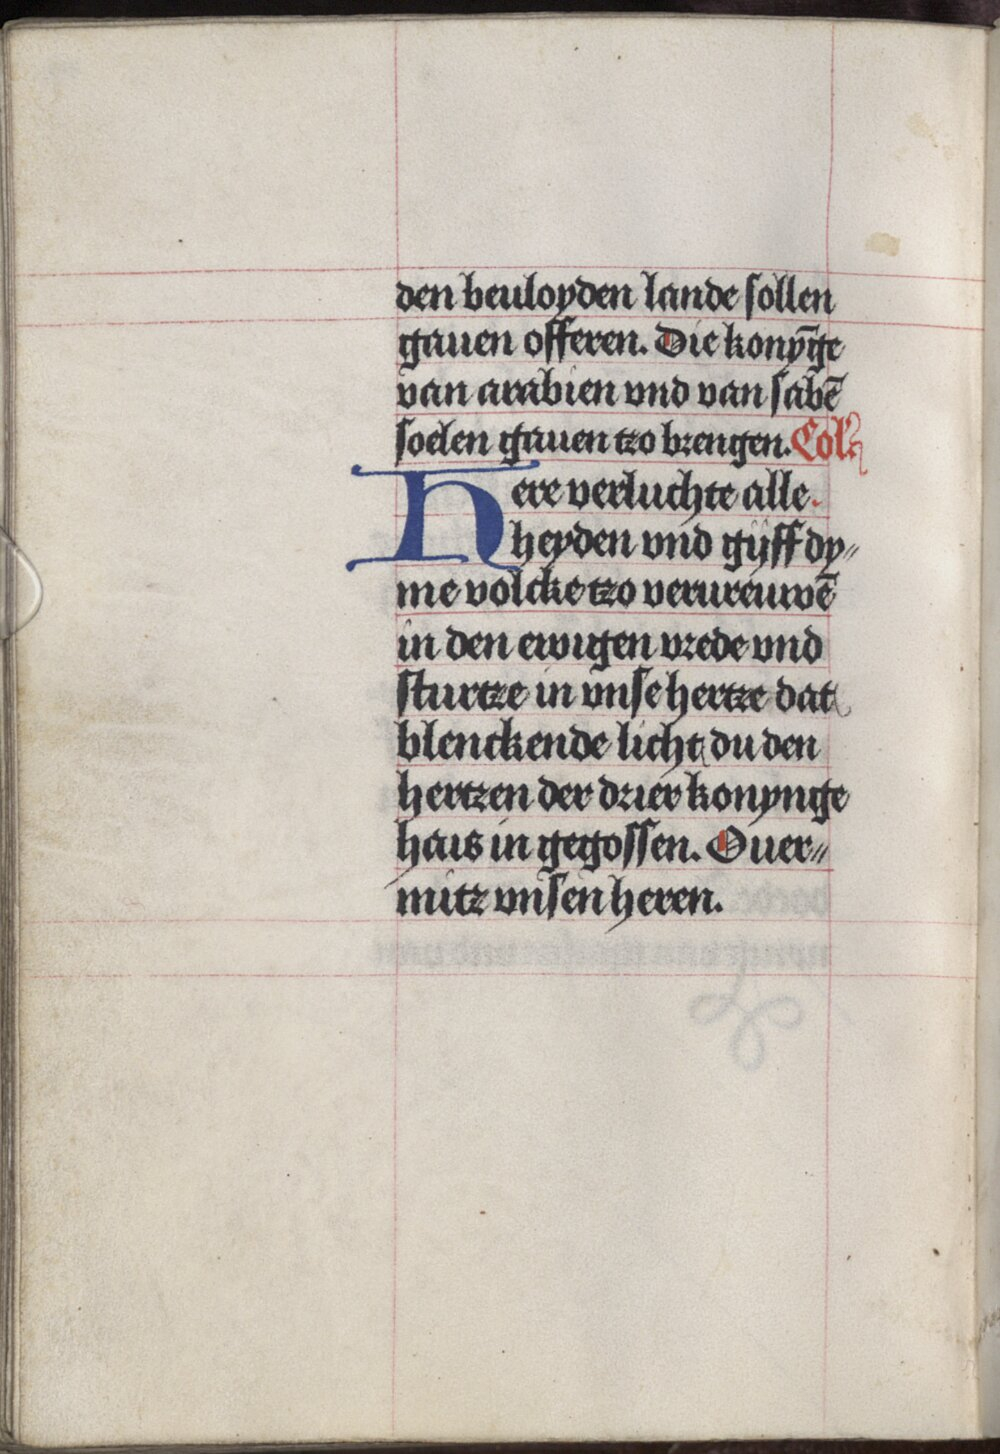 den beuloyden lande sollen
gauen offeren. Die konyn̄ge
van arabien vnd van sabē
soelen gauen tzo brengen. Coll̄
Here verluchte alle.
heyden vnd gyff dy〃
me volcke tzo verureuwē
in den ewigen vrede vnd
sturtze in vnse hertze dat
blenckende licht du den
hertzen der drier konynge
hais in gegossen. Ouer〃
mitz vnsen heren.